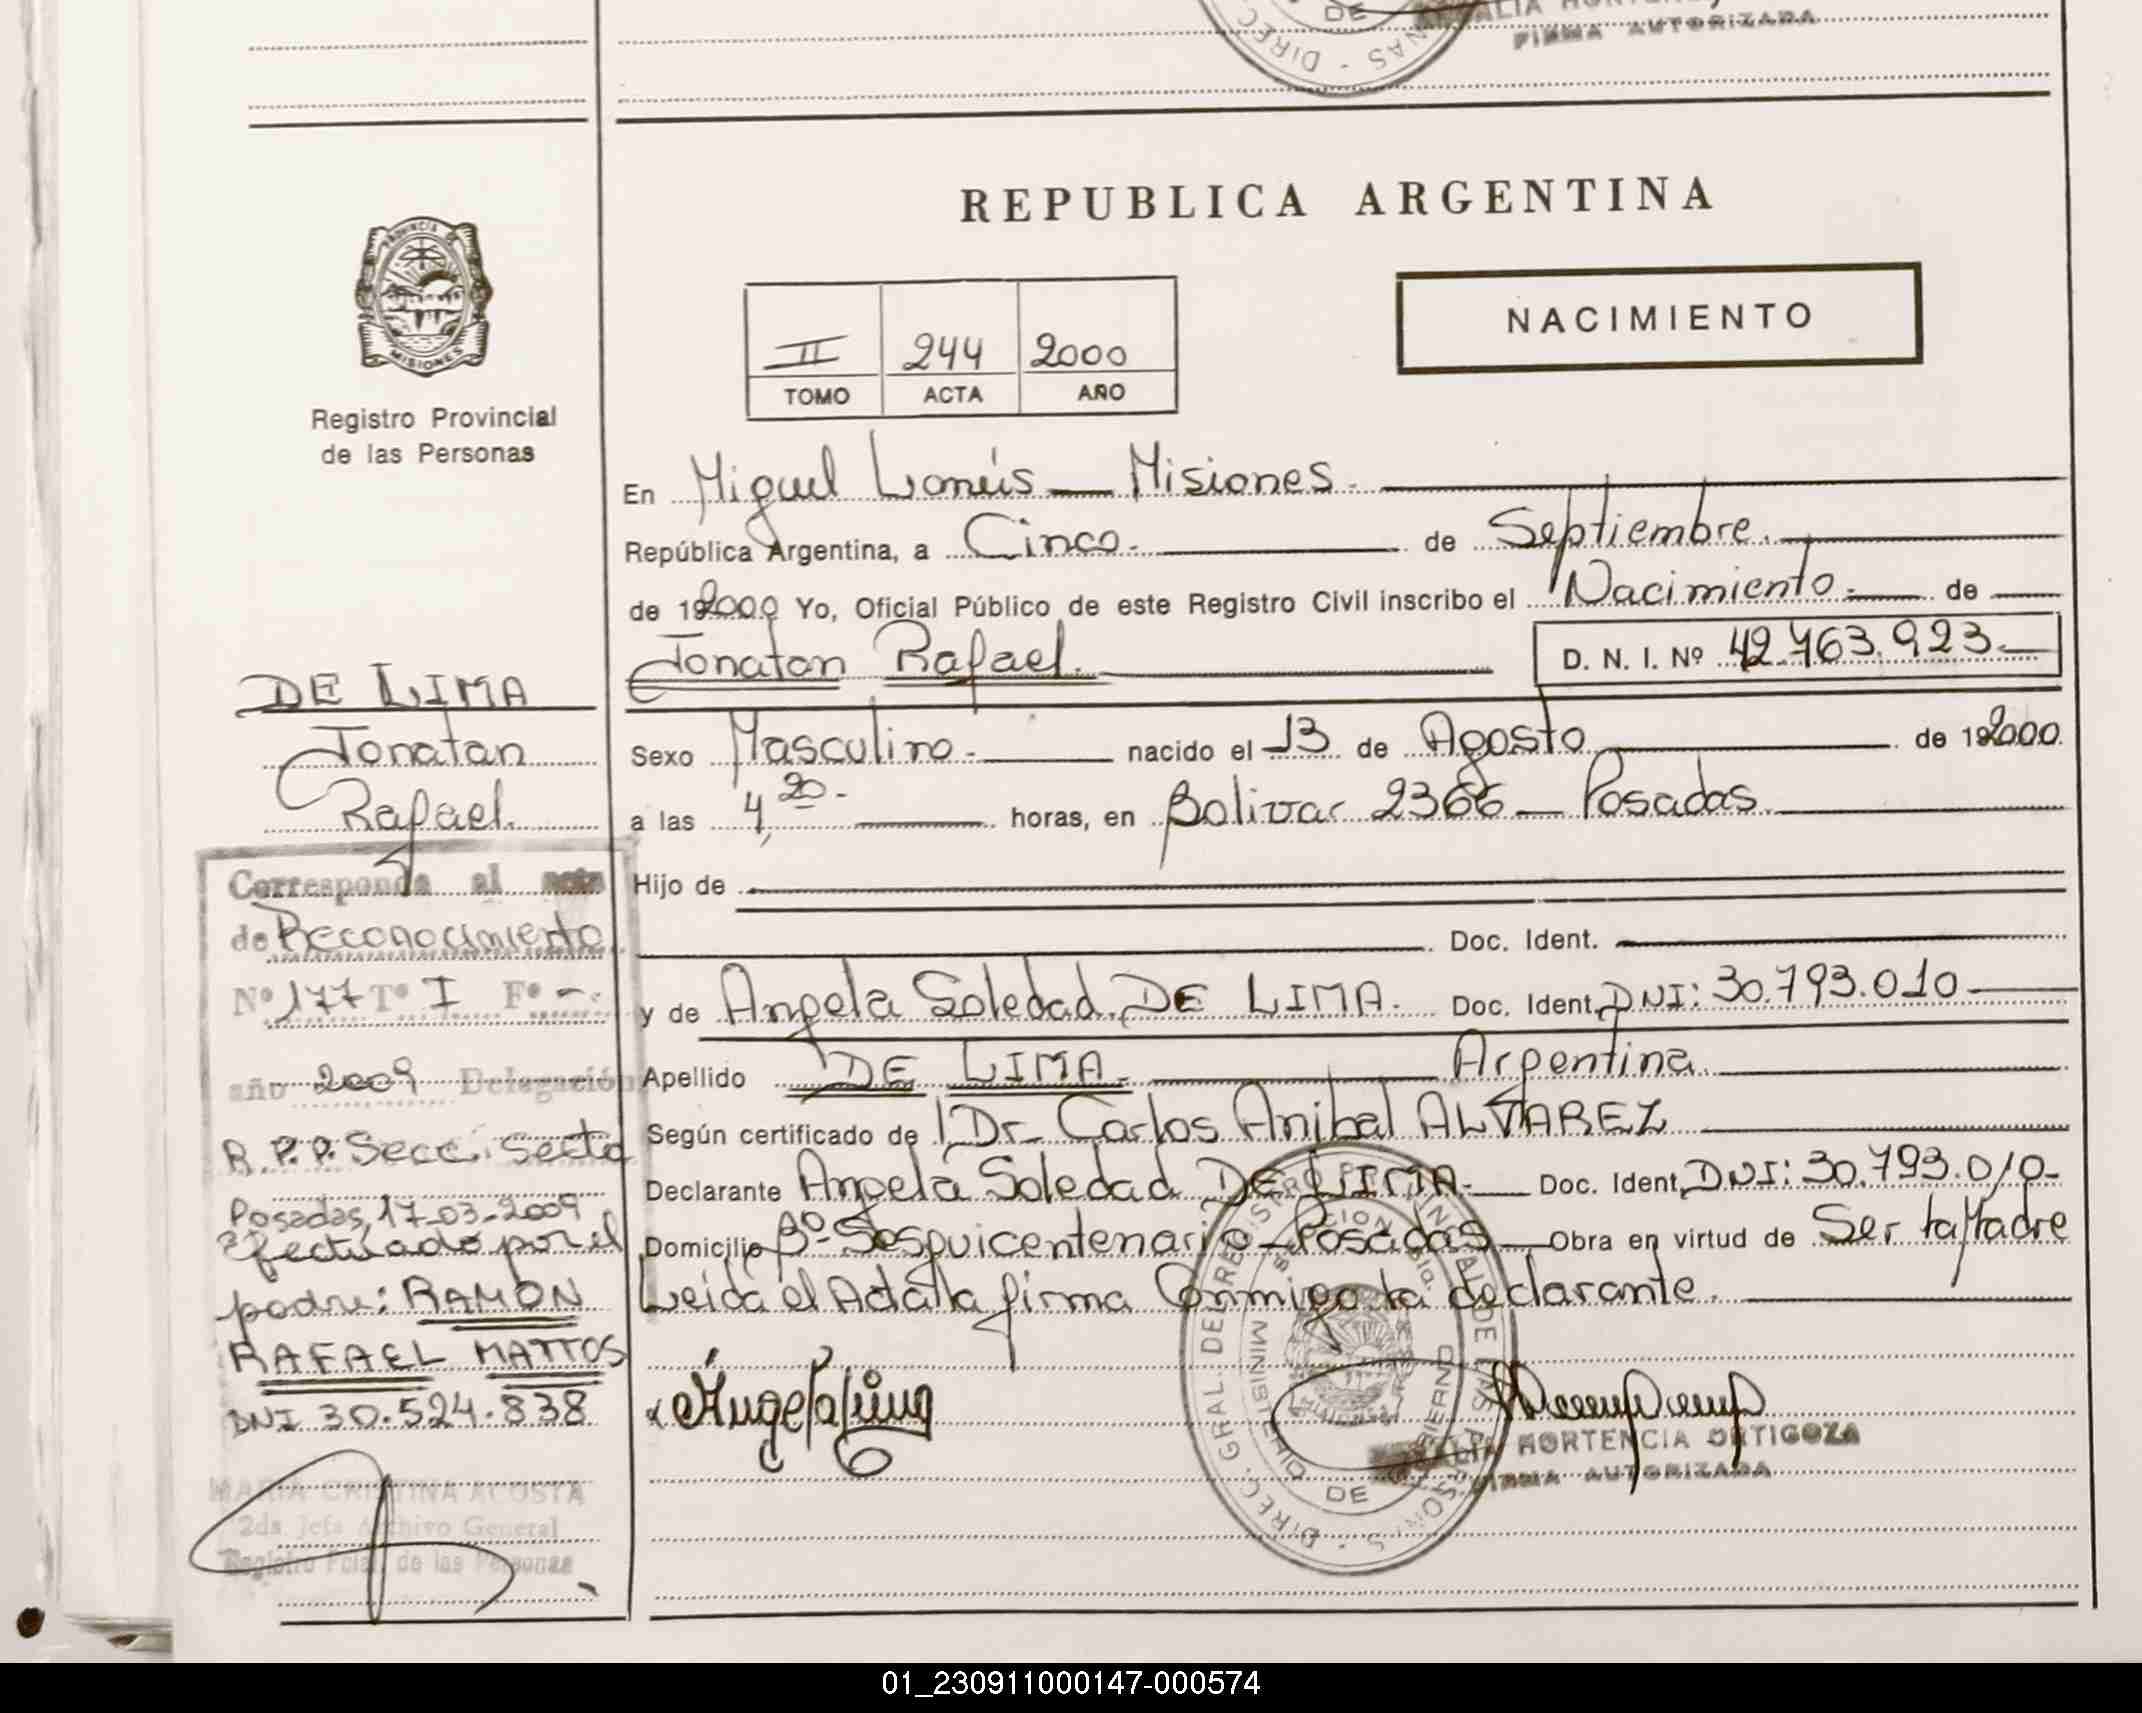 FIRMA AUTORIZADA
REPUBLICA ARGENTINA
PROVINCIA DE MISIONES
Registro Provincial
de las Personas
NACIMIENTO
II 244 2000
TOMO ACTA AÑO
En Miguel Lanús — Misiones.
República Argentina, a Cinco. de Septiembre.
de 192000 Yo, Oficial Público de este Registro Civil inscribo el Nacimiento. de
Jonatan Rafael. D. N. I. Nº 42.763.923.
Sexo Masculino. nacido el 13 de Agosto de 192000
a las 4,20. horas, en Bolivar 2366 — Posadas.
Hijo de
Doc. Ident.
y de Angela Soledad DE LIMA. Doc. Ident. DNI: 30.793.010
Apellido DE LIMA. Argentina.
Según certificado de Dr. Carlos Anibal ALVAREZ
Declarante Angela Soledad DE LIMA. Doc. Ident. DNI: 30.793.010
Domicilio Bº Sesquicentenario — Posadas Obra en virtud de Ser la Madre
Leída el Acta la firma Conmigo la declarante.
HORTENCIA ORTIGOZA
FIRMA AUTORIZADA
DE LIMA
Jonatan
Rafael.
Corresponde al acta
de Reconocimiento
Nº 177 Tº I Fº -.
año 2009 Delegación
R.P.P. Secc. Sexta
Posadas, 17-03-2009
Efectuado por el
padre: RAMON
RAFAEL MATTOS
DNI 30.524.838
MARIA CRISTINA ACOSTA
2da Jefa Archivo General
Registro Pcial. de las Personas
01_230911000147-000574